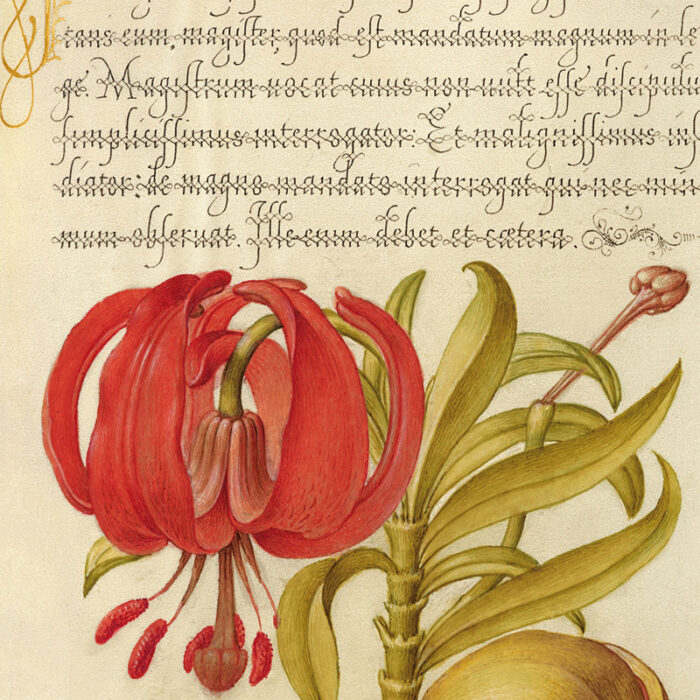 tans eum, magister, quod est mandatum magnum in le
ge. Magistrum uocat cuius non uult esse discipulu
simplicissimus interrogator. Et malignissimus insi
diator: de magno mandato interrogat qui nec mini
mum obseruat. Ille enim debet et cœtera.